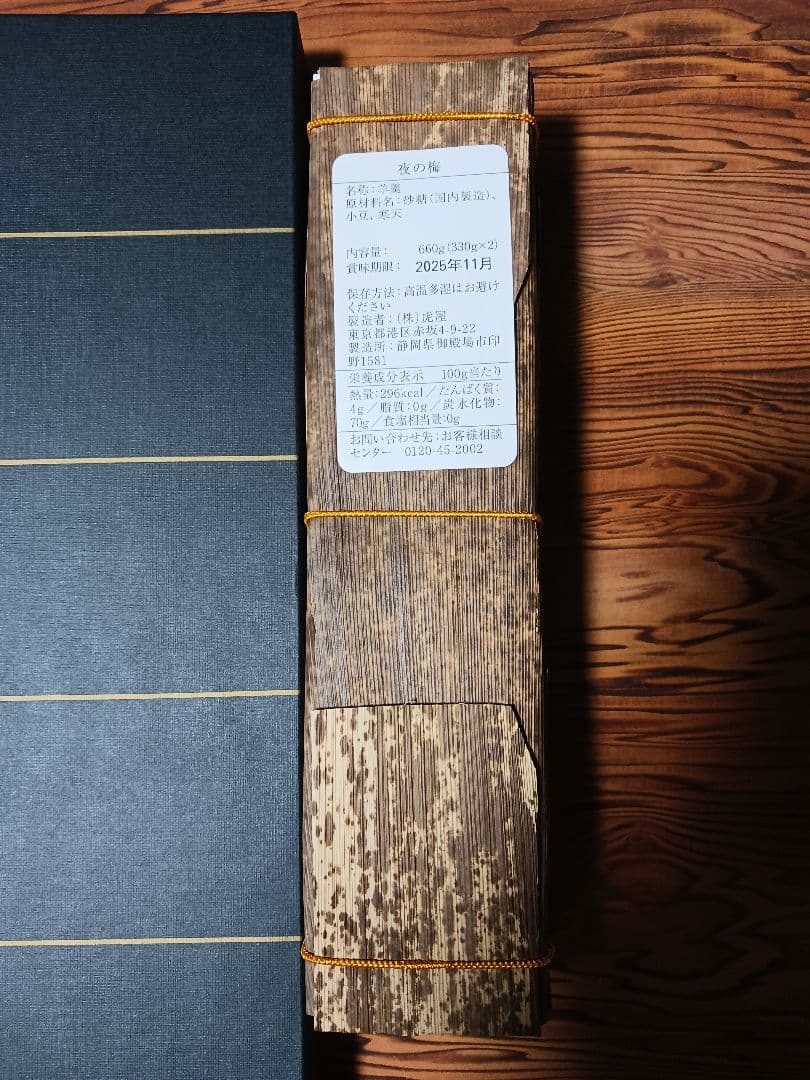 夜の梅
名称：羊羹
原材料名：砂糖（国内製造）、
小豆、寒天
内容量： 660g（330g×2）
賞味期限： 2025年11月
保存方法：高温多湿はお避け
ください
製造者：（株）虎屋
東京都港区赤坂4-9-22
製造所：静岡県御殿場市印
野1581
栄養成分表示 100g当たり
熱量：296kcal／たんぱく質：
4g／脂質：0g／炭水化物：
70g／食塩相当量：0g
お問い合わせ先：お客様相談
センター 0120-45-2002